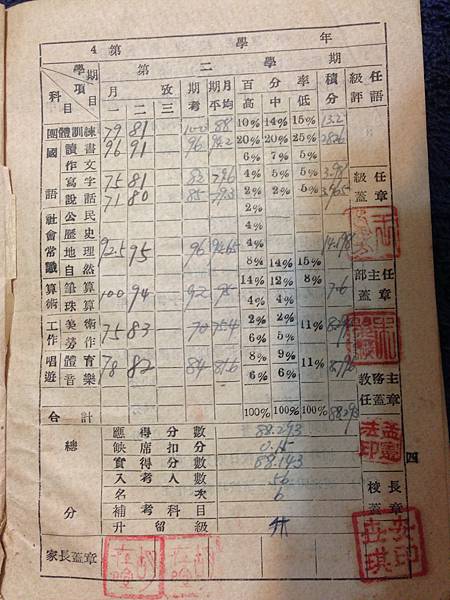 4 第 學 年
學期 第 二 學 期
科目 項目 月 攷 一 二 三 期考 月期平均 百分率 高 中 低 積分 級任評語
團體訓練 79 81 100 88 10% 14% 15% 13.2
國語 讀書 96 91 96 20% 20% 25%
作文 6% 7% 5%
寫字 75 81 4% 5% 5%
說話 71 80 85 2% 2% 5% 級任蓋章
社會常識 公民 2%
歷史 4%
地理 92.5 95 96 4%
自然 8% 14% 15%
算術 筆算 100 94 92 95 14% 12% 8% 7.6 部主任蓋章
珠算 4% 4%
工作 美術 75 83 70 75.4 2% 2% 11%
勞作 6% 5%
唱遊 體育 78 82 84 81.6 8% 9% 11% 教務主任蓋章
音樂 6% 6%
合計 100% 100% 100% 88.293
總分
應得分數 88.293
缺席扣分 0.15
實得分數 88.143
入考人數 56 校長蓋章
名次 6
補考科目
升留級 升
家長蓋章
四